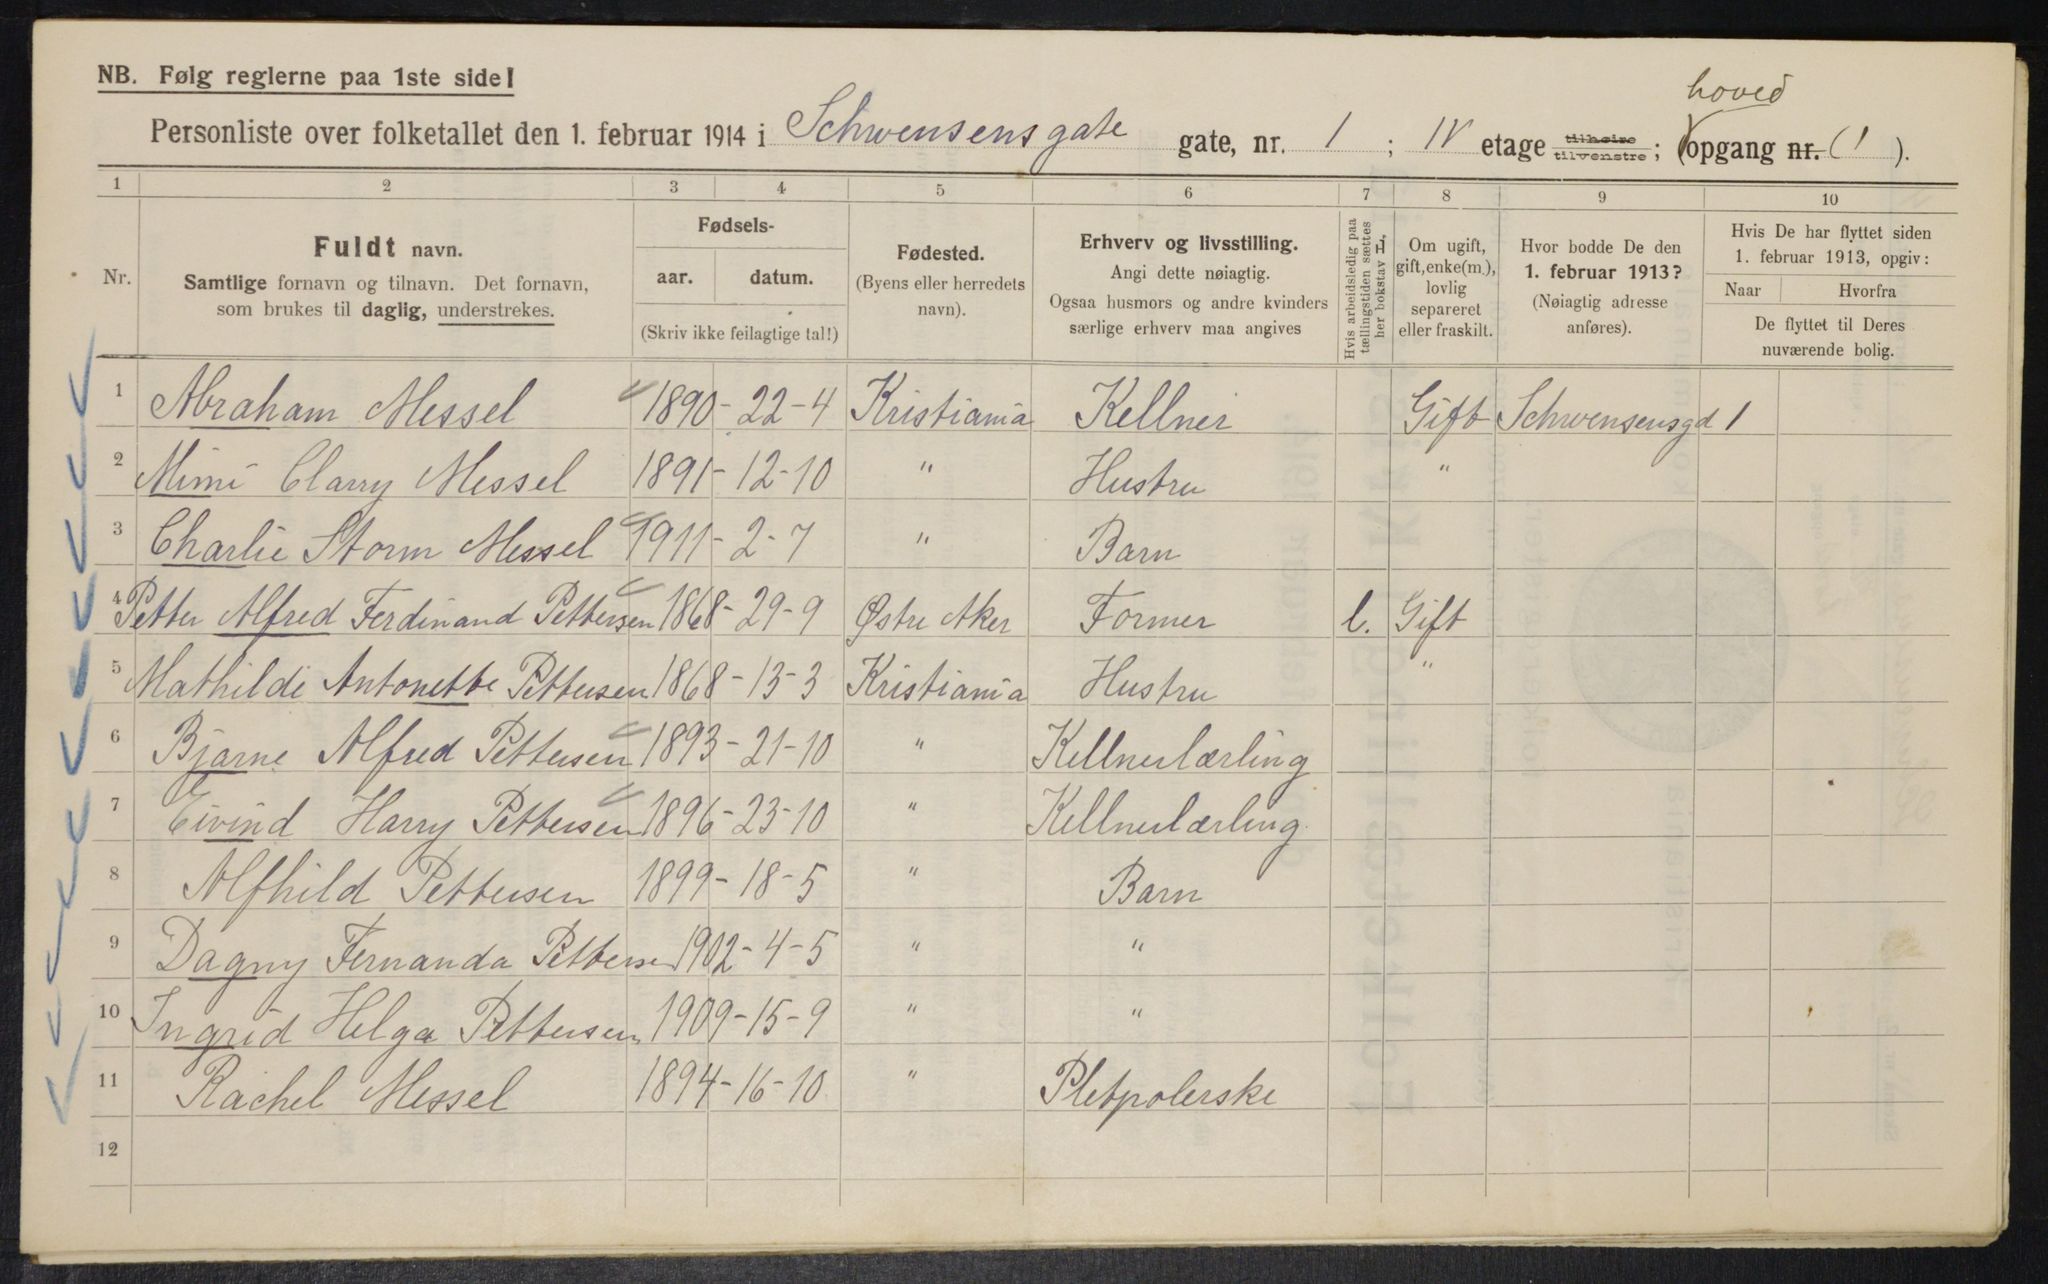 NB. Følg reglerne paa 1ste side!
hoved
Personliste over folketallet den 1. februar 1914 i Schwensensgate gate, nr. 1 ; IV etage tilhøire tilvenstre ; (opgang nr. (1 ).
1 2 3 4 5 6 7 8 9 10
Nr.
Fuldt navn.
Samtlige fornavn og tilnavn. Det fornavn,
som brukes til daglig, understrekes.
Fødsels-
aar. datum.
(Skriv ikke feilagtige tal!)
Fødested.
(Byens eller herredets
navn).
Erhverv og livsstilling.
Angi dette nøiagtig.
Ogsaa husmors og andre kvinders
særlige erhverv maa angives
Hvis arbeidsledig paa
tællingstiden sættes
her bokstav L,
Om ugift,
gift, enke(m.),
lovlig
separeret
eller fraskilt.
Hvor bodde De den
1. februar 1913?
(Nøiagtig adresse
anføres).
Hvis De har flyttet siden
1. februar 1913, opgiv:
Naar Hvorfra
De flyttet til Deres
nuværende bolig.
1 Abraham Messel 1890 - 22 - 4 Kristiania Kellner Gift Schwensensgd 1
2 Mimi Clarry Messel 1891 - 12 - 10 " Hustru "
3 Charlie Storm Messel 1911 - 2 - 7 " Barn
4 Petter Alfred Ferdinand Pettersen 1868 - 29 - 9 Østre Aker Former l. Gift
5 Mathilde Antonette Pettersen 1868 - 13 - 3 Kristiania Hustru "
6 Bjarne Alfred Pettersen 1893 - 21 - 10 " Kellnerlærling
7 Eivind Harry Pettersen 1896 - 23 - 10 " Kellnerlærling
8 Alfhild Pettersen 1899 - 18 - 5 " Barn
9 Dagny Fernanda Petterse 1902 - 4 - 5 " "
10 Ingrid Helga Pettersen 1909 - 15 - 9 " "
11 Rachel Messel 1894 - 16 - 10 " Pletpolerske
12